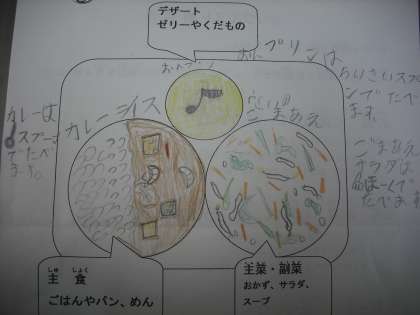 デザート
ゼリーやくだもの
おんプリン
おんプリンは
ちいさいスプー
ンでたべ
ます。
カレーは
スプーン
でたべ
ます。
カレーライス
ごまあえ
ごまあえ
サラダは
たべます
しゅ しょく
主 食
ごはんやパン、めん
主菜・副菜
おかず、サラダ、
スープ